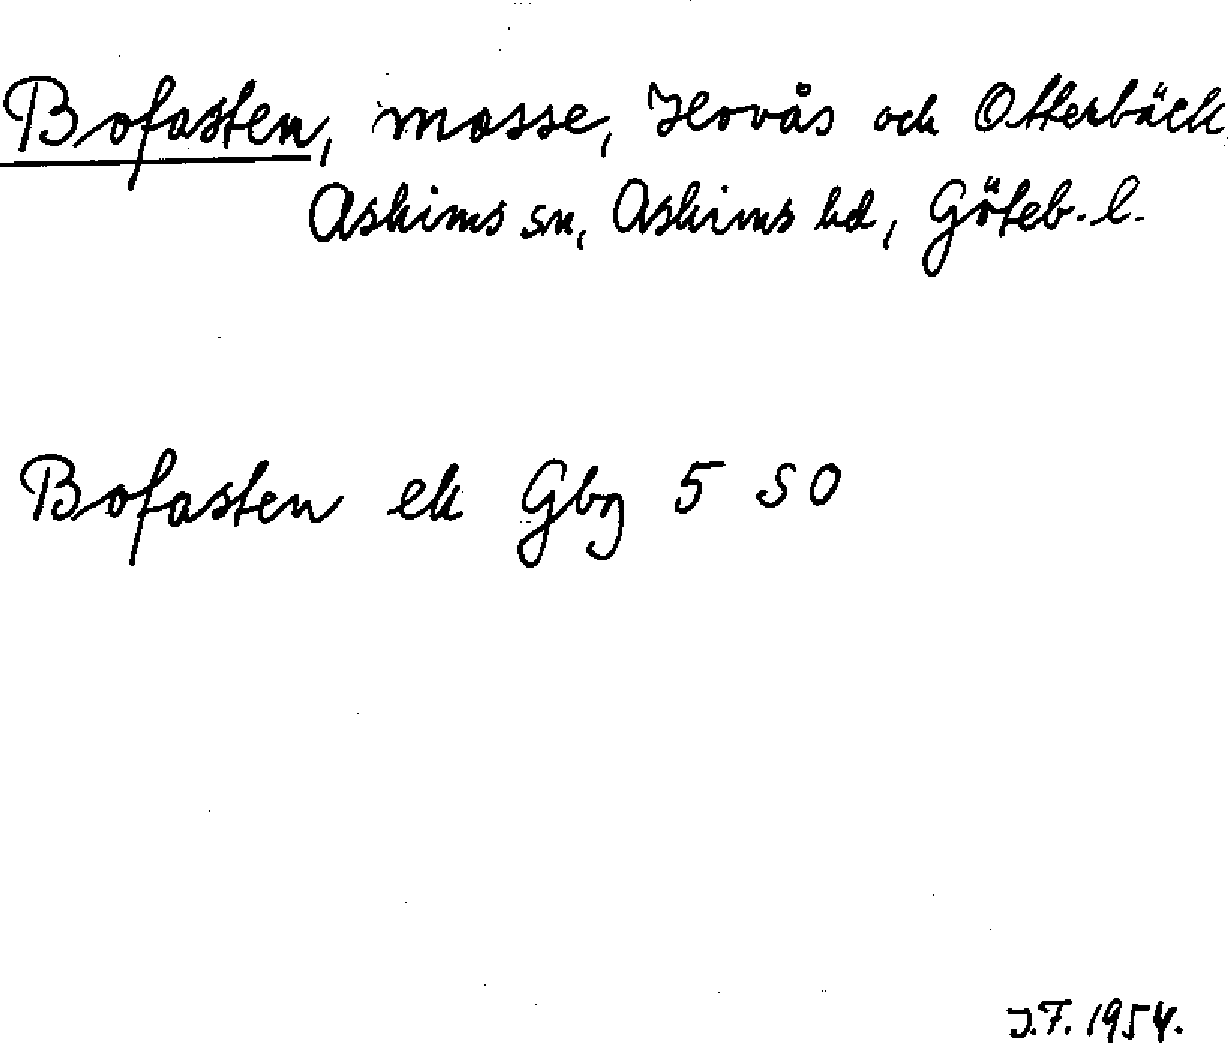 Bofasten, mosse, Hovås och Otterbäck,
Askims sn, Askims hd, Göteb. l.
Bofasten ek Gbg 5 SO
J.F. 1954.